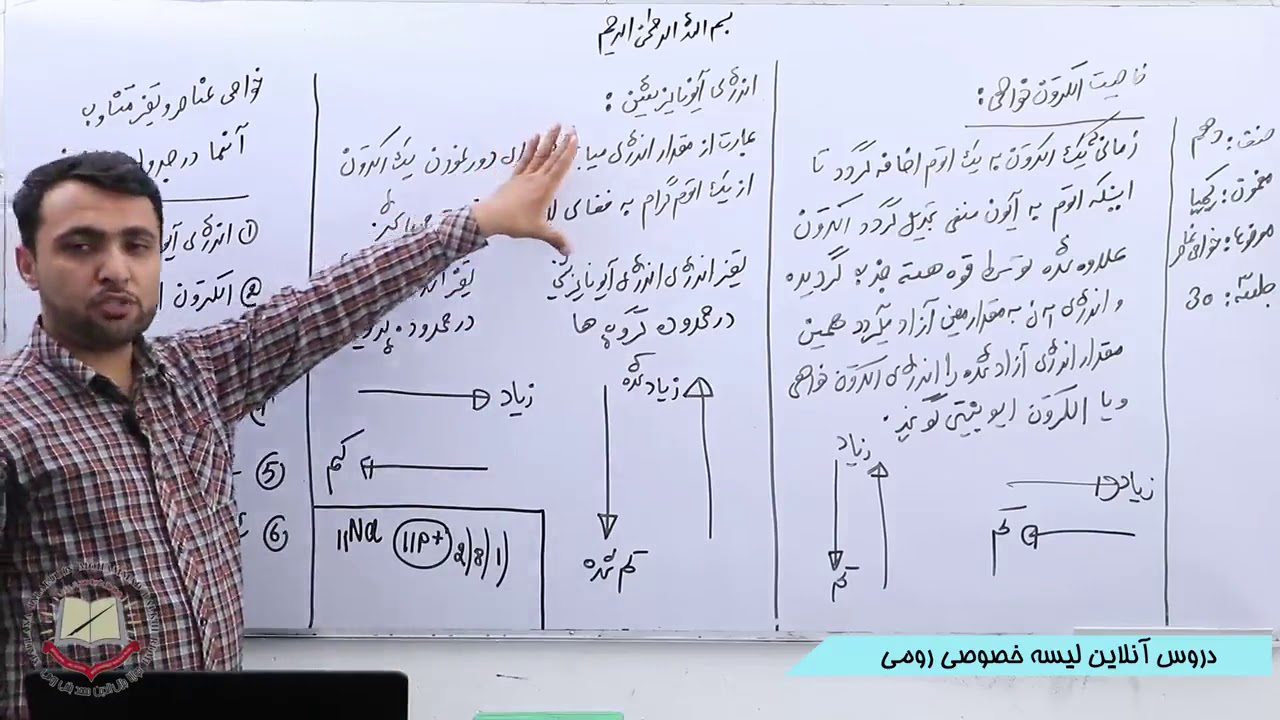 بسم الله الرحمن الرحیم
صنف: دهم
مضمون: کیمیا
جلسه: 30
خاصیت الکترون خواهی:
زمانی یک الکترون به یک اتوم اضافه گردد تا
اینکه اتوم به آیون منفی تبدیل گردد الکترون
علاوه شده توسط قوه هسته جذب گردیده
و انرژی آن به مقدار معین آزاد میگردد همین
مقدار انرژی آزاد شده را انرژی الکترون خواهی
و یا الکترون گویند.
زیاد
کم
زیاد
کم
انرژی آیونایزیشن:
عبارت از مقدار انرژی دور نمودن یک الکترون
از یک اتوم گرام به فضای
تغیر انرژی آیونایزیشن
در محدوده گروپ ها
زیاد شده
کم شده
تغیر
در محدوده
زیاد
کم
11Na 11P+ 2)8)1)
خواص عناصر و تغیر متناوب
آنها در جدول
① انرژی
② الکترون
⑤
⑥
دروس آنلاین لیسه خصوصی رومی